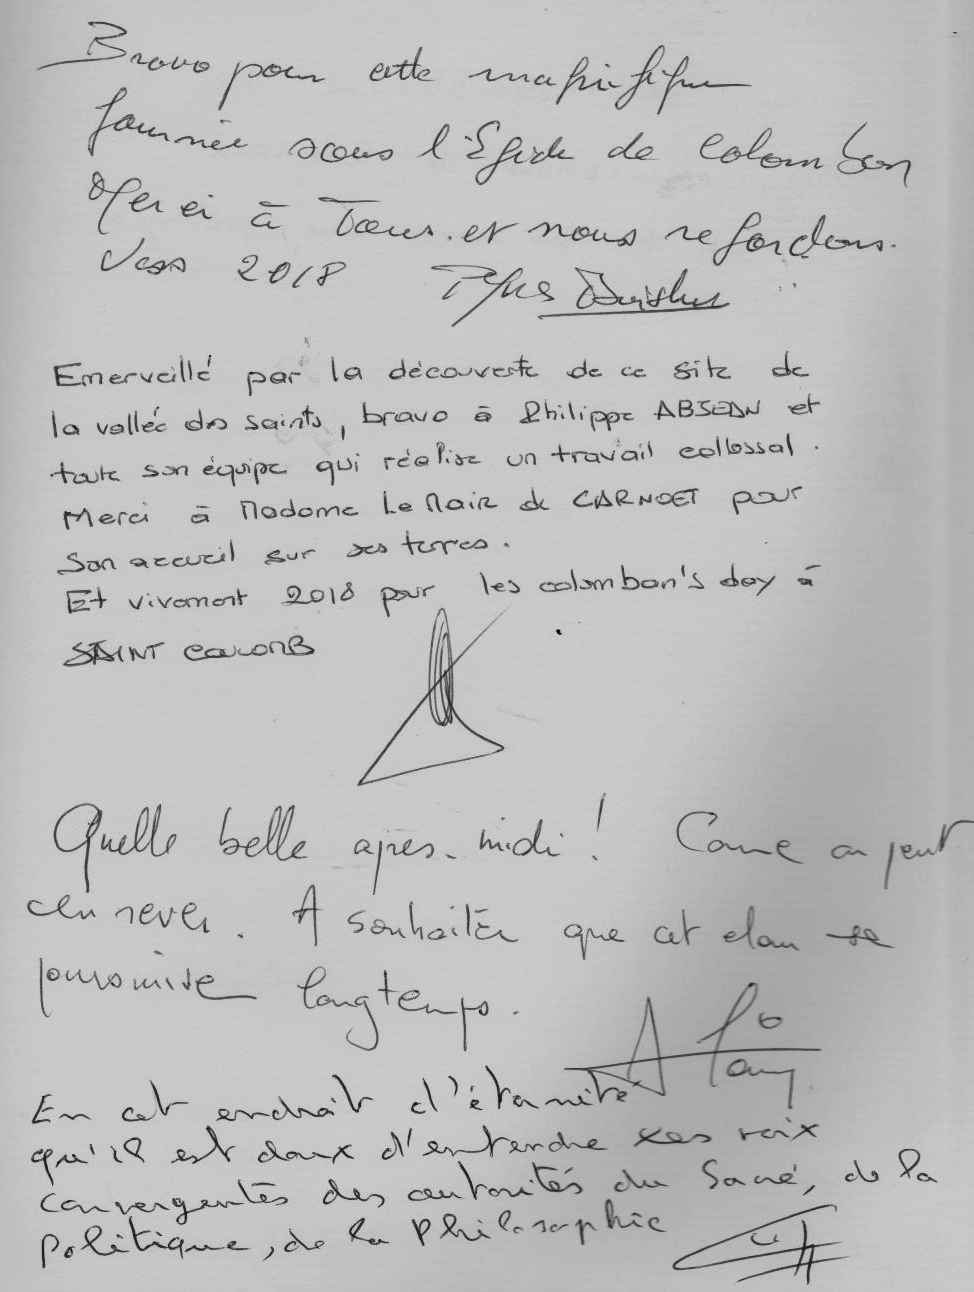 Bravo pour cette magnifique
journée sous l'Egide de Colomban
Merci à Tous. et nous regardons.
Vers 2018
Emerveillé par la découverte de ce site de
la vallée des saints, bravo à Philippe ABJEAN et
toute son équipe qui réalise un travail collossal.
Merci à Madame Le Maire de CARNOET pour
Son accueil sur ses terres.
Et vivement 2018 pour les colomban's day à
SAINT COULOMB
Quelle belle après-midi! Comme on peut
en rever. A souhaiter que cet elan se
poursuive longtemps.
En cet endroit d'éternité
qu'il est doux d'entendre ses voix
convergentes des autorités du Sacré, de la
politique, de la Philosophie